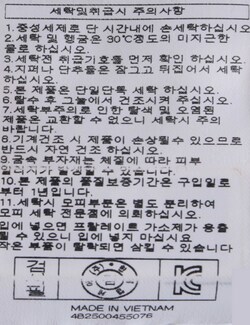 세탁및취급시 주의사항
1.중성세제로 단 시간내에 손세탁하십시오
2.세탁 및 헹굼은 30℃정도의 미지근한
물로 하십시오.
3.세탁전 취급기호를 먼저 확인 하십시오
4.지퍼나 단추들은 잠그고 뒤집어서 세탁
하십시오.
5.본 제품은 단일단독 세탁 하십시오.
6.탈수 후 그늘에서 건조시켜 주십시오.
7.세탁부주의로 인한 탈색 및 오염된
제품은 교환할 수 없으니 세탁시 주의
바랍니다.
8.기계건조 시 제품이 손상될수 있으므로
반드시 자연 건조 하십시오.
9.금속 부자재는 체질에 따라 피부
알러지가 발생할 수 있습니다.
10.본 제품의 품질보증기간은 구입일로
부터 1년입니다.
11.세탁시 모피부분은 별도 분리하여
모피 세탁 전문점에 의뢰하십시오.
입에 넣으면 프탈레이트 가소제가 용출
될 수 있으니 입에 넣지 마십시요
작은 부품이 탈락되면 삼킬 수 있습니다
검 품
MADE IN VIETNAM
4B2500455076